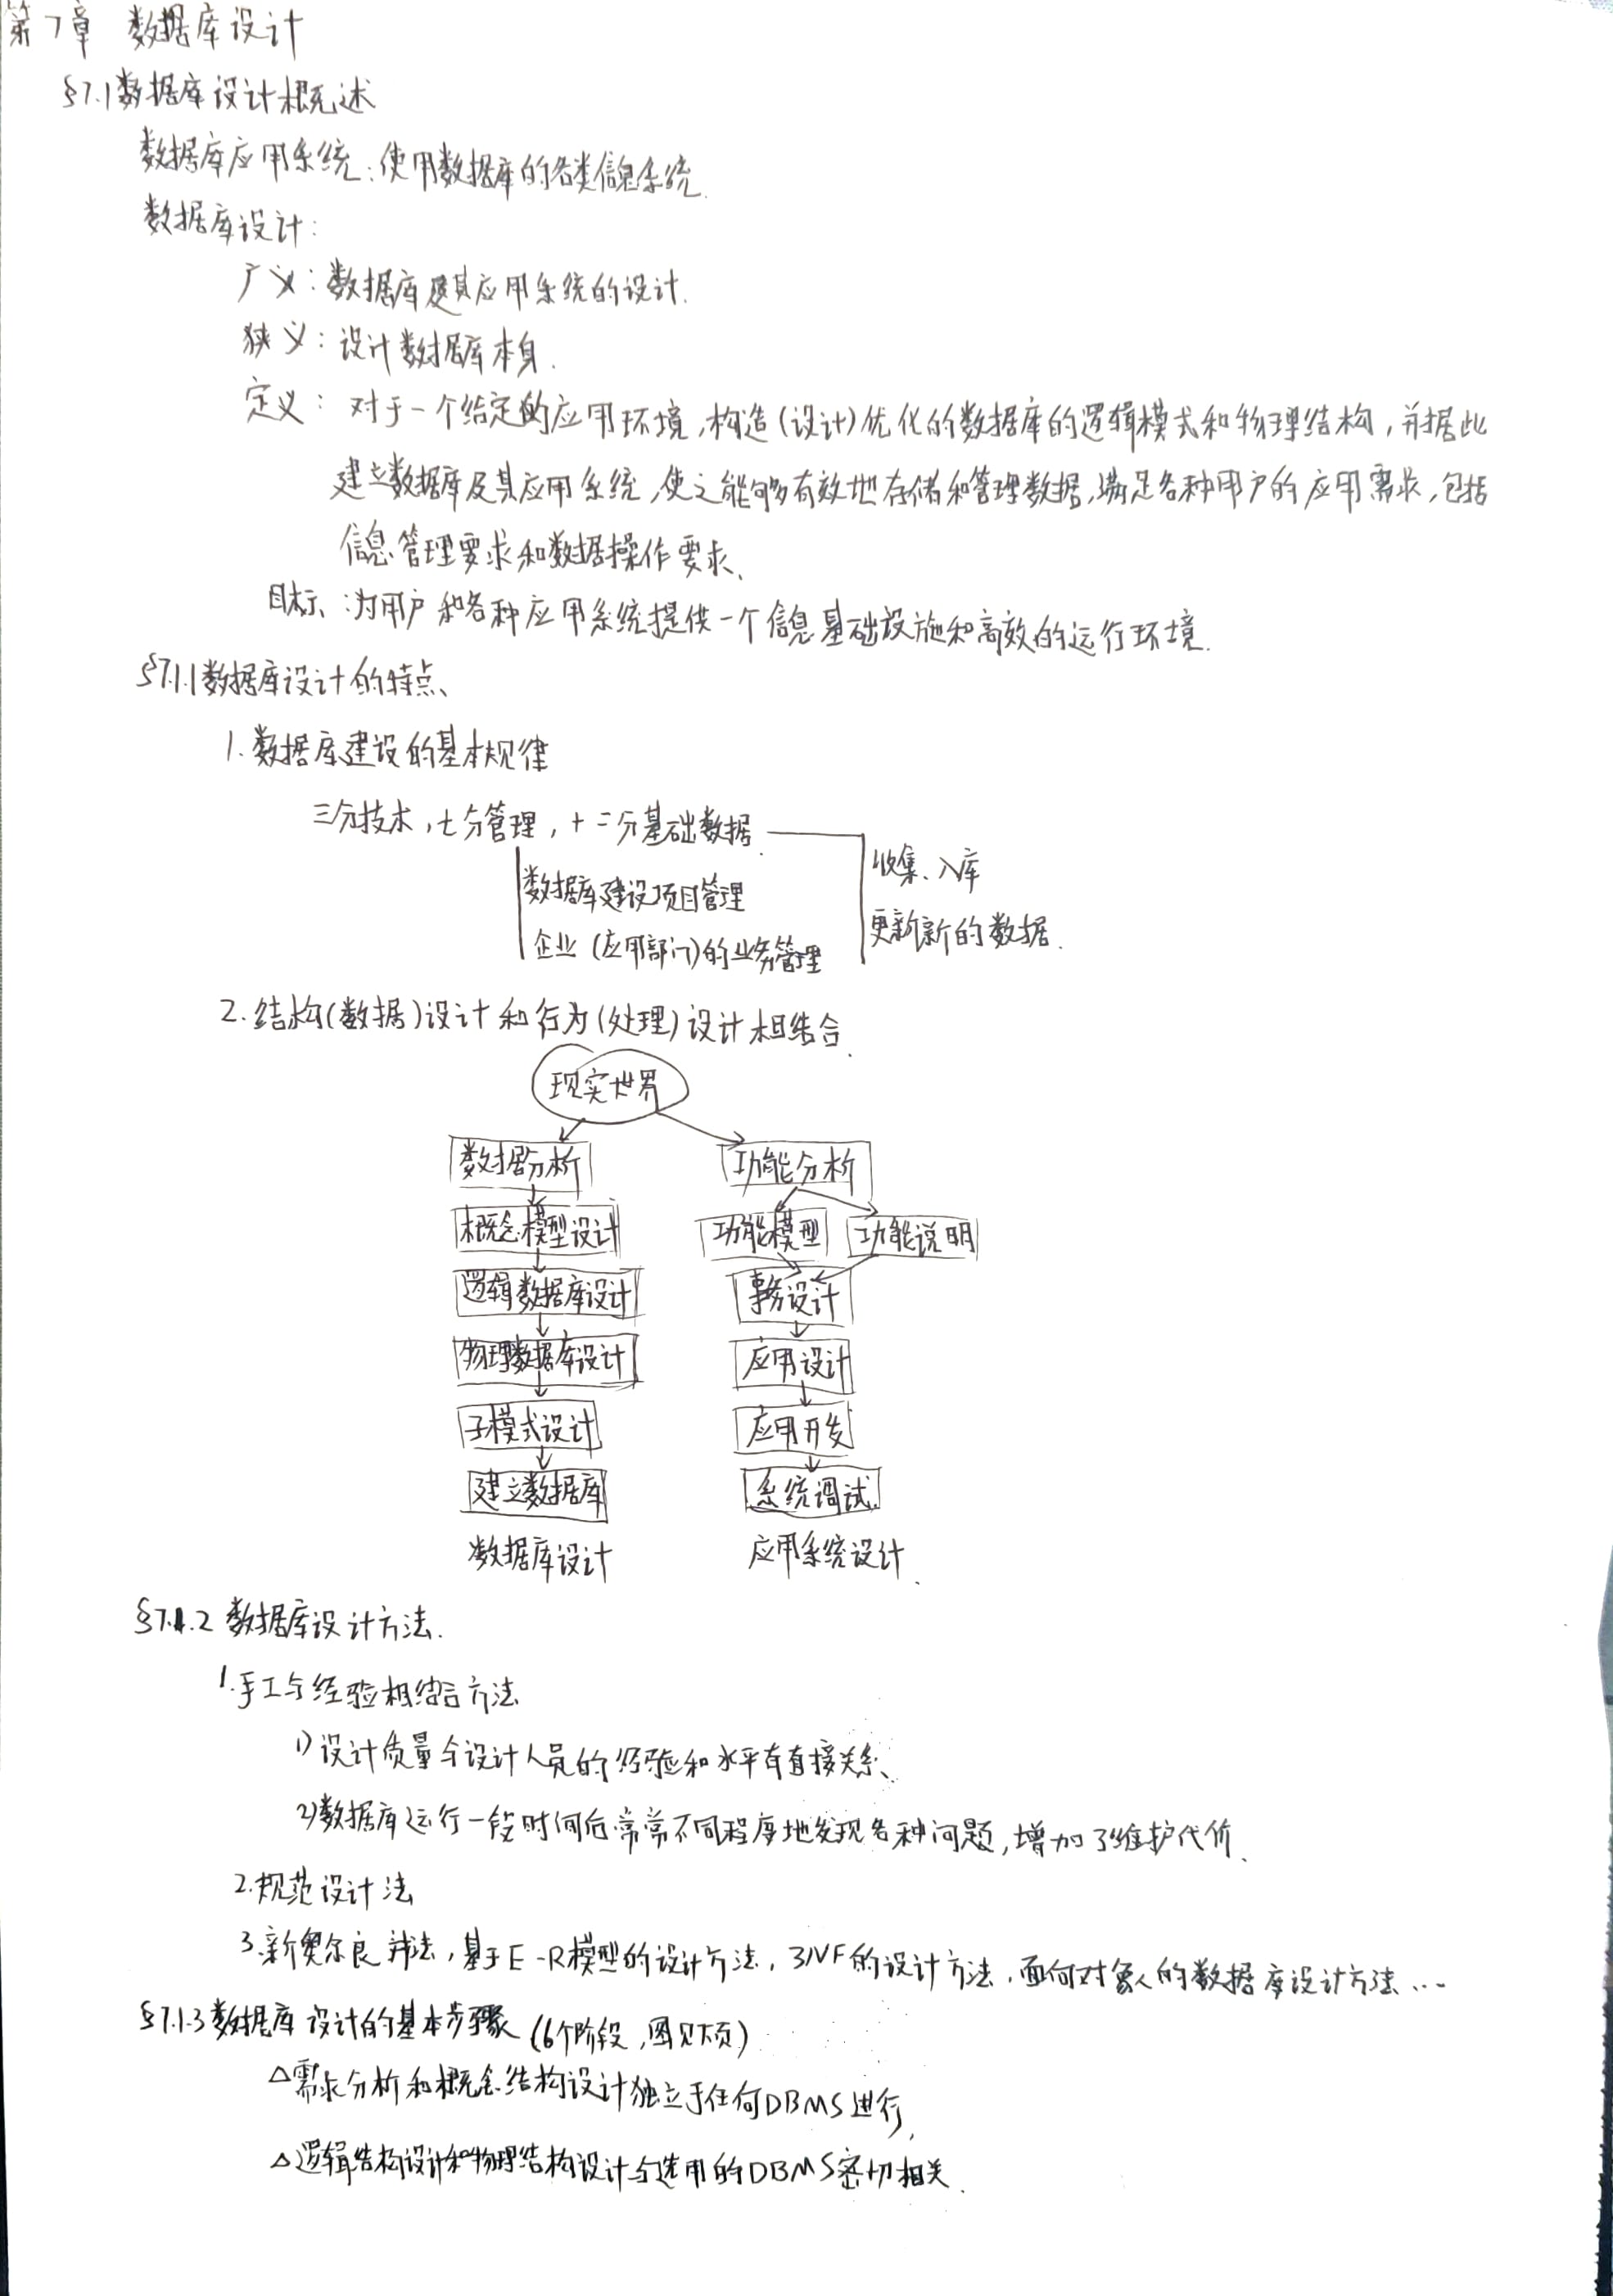 第7章 数据库设计
§7.1数据库设计概述
数据库应用系统:使用数据库的各类信息系统.
数据库设计:
广义:数据库及其应用系统的设计.
狭义:设计数据库本身.
定义:对于一个给定的应用环境,构造(设计)优化的数据库的逻辑模式和物理结构,并据此
建立数据库及其应用系统,使之能够有效地存储和管理数据,满足各种用户的应用需求,包括
信息管理要求和数据操作要求、
目标:为用户和各种应用系统提供一个信息基础设施和高效的运行环境.
§7.1.1数据库设计的特点、
1.数据库建设的基本规律
三分技术,七分管理,十二分基础数据.
收集、入库
数据库建设项目管理
更新新的数据.
企业(应用部门)的业务管理
2.结构(数据)设计和行为(处理)设计相结合.
现实世界
数据分析 功能分析
概念模型设计 功能模型 功能说明
逻辑数据库设计 事务设计
物理数据库设计 应用设计
子模式设计 应用开发
建立数据库 系统调试.
数据库设计 应用系统设计.
§7.1.2 数据库设计方法.
1.手工与经验相结合方法
1)设计质量与设计人员的经验和水平有直接关系、
2)数据库运行一段时间后常常不同程度地发现各种问题,增加了维护代价、
2.规范设计法
3.新奥尔良方法,基于E-R模型的设计方法,3NF的设计方法,面向对象的数据库设计方法...
§7.1.3数据库设计的基本步骤(6个阶段,图见下页)
△需求分析和概念结构设计独立于任何DBMS进行,
△逻辑结构设计和物理结构设计与选用的DBMS密切相关.